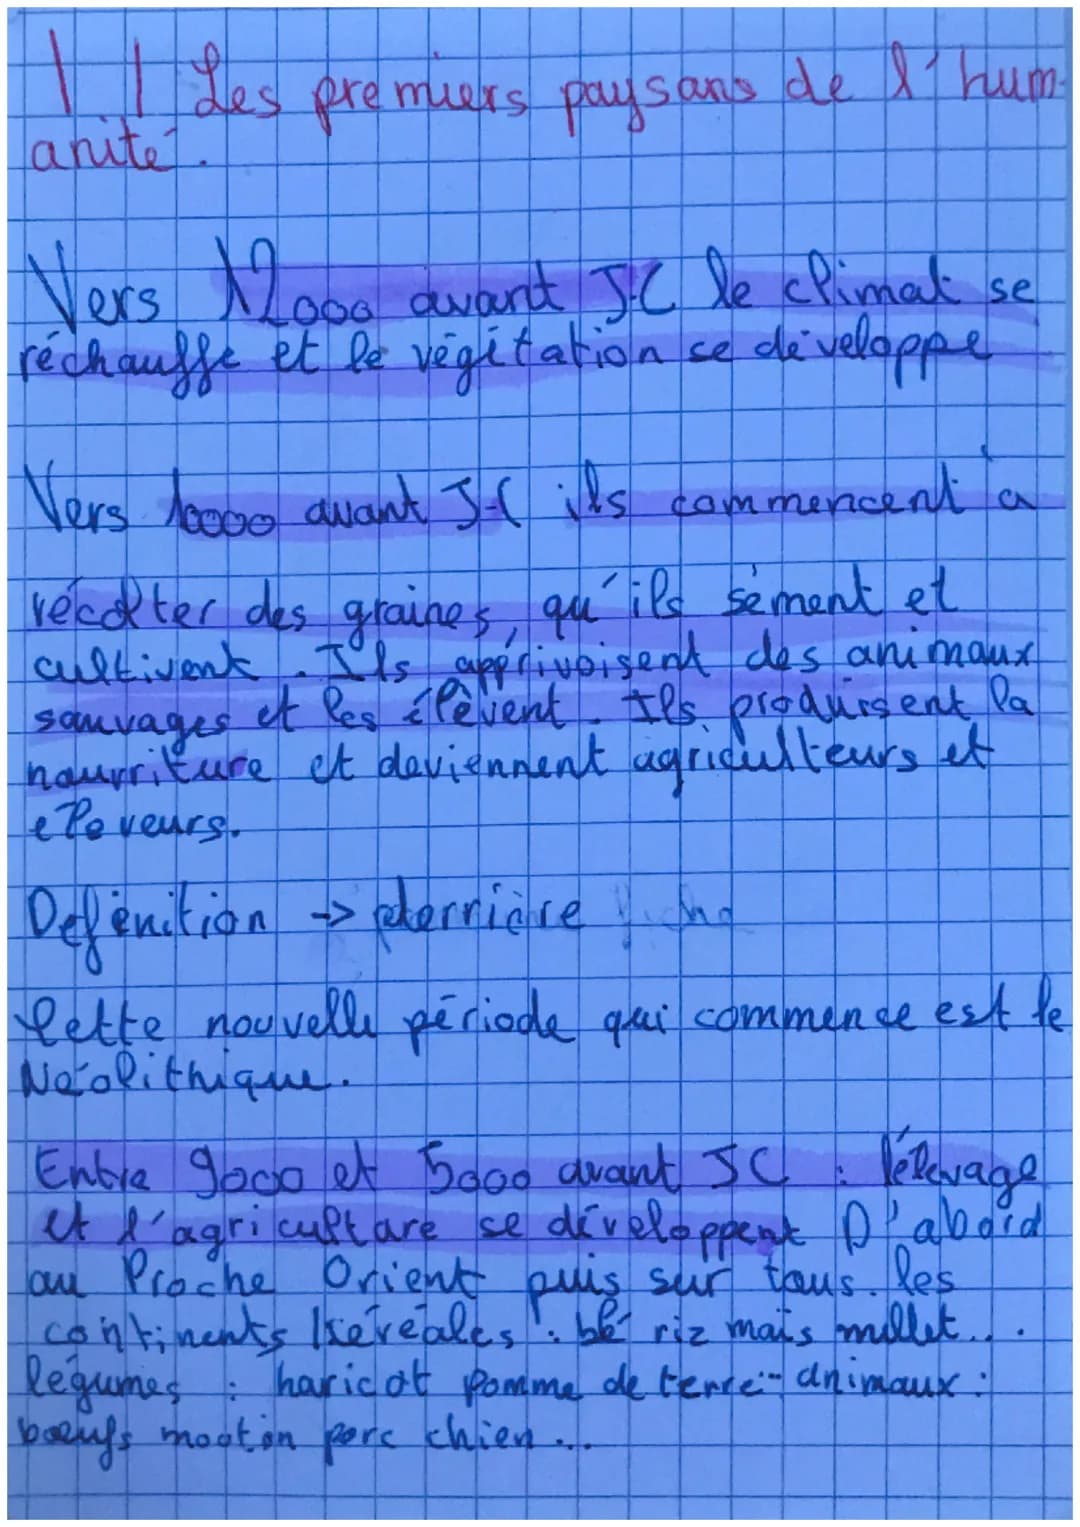 I | Les premiers paysans de l'hum-
anité.
Vers 12000 avant J-C le climat se
réchauffe et le végétation se développe
Vers 10000 avant J-C ils commencent à
récolter des graines, qu'ils sèment et
cultivent. Ils apprivoisent des animaux
sauvages et les élèvent. Ils produisent la
nourriture et deviennent agriculteurs et
eleveurs.
Definition -> derrière fiche
Cette nouvelle période qui commence est le
Néolithique.
Entre 9000 et 5000 avant JC : l'élevage
et l'agriculture se développent D'abord
au Proche Orient puis sur tous les
continents (céréales : blé riz maïs millet...
légumes : haricot pomme de terre - animaux :
boeufs mouton porc chien...